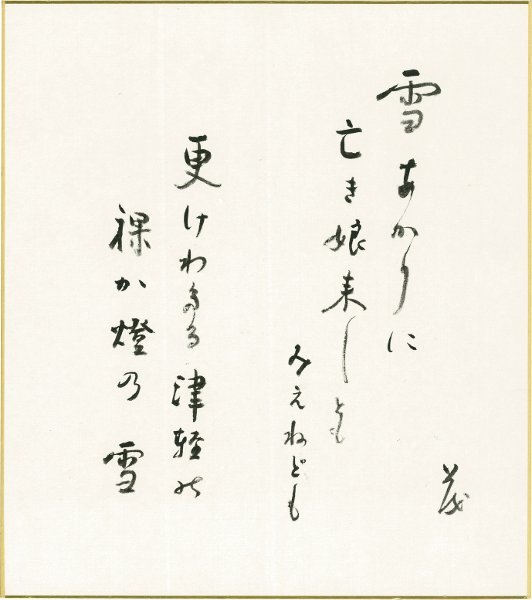 雪あかりに
亡き娘来しとも
みえねども
更けわたる津軽の
裸か燈の雪
茂